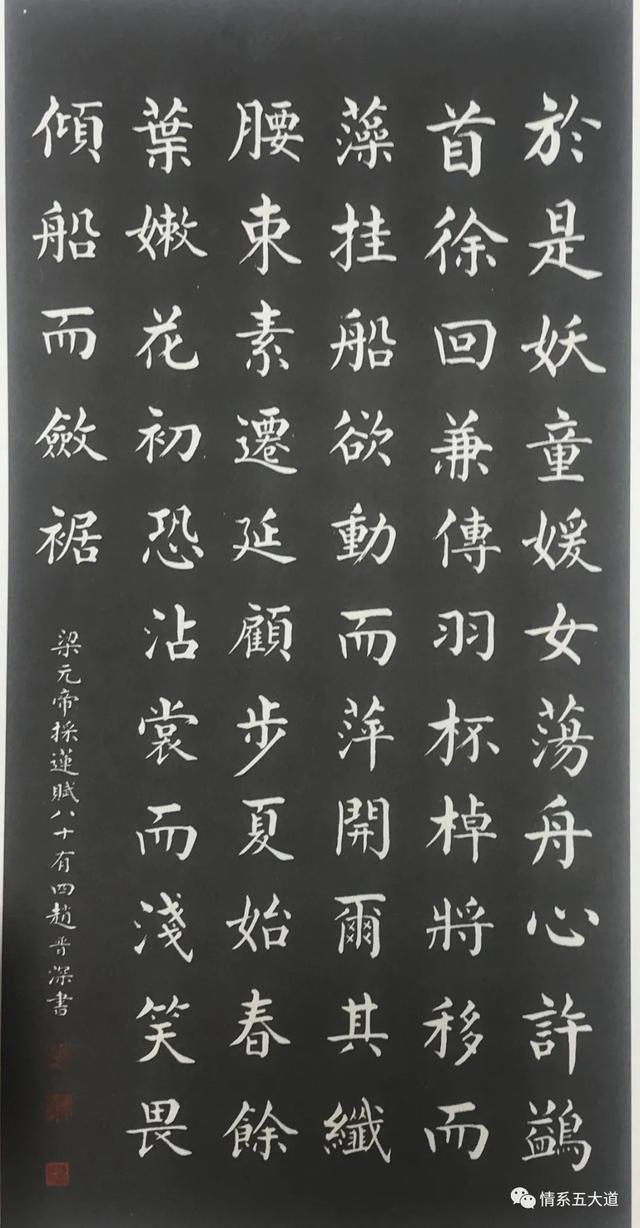 於是妖童媛女蕩舟心許鷁
首徐回兼傳羽杯棹將移而
藻挂船欲動而萍開爾其纖
腰束素遷延顧步夏始春餘
葉嫩花初恐沾裳而淺笑畏
傾船而斂裾
梁元帝採蓮賦八十有四趙晋深書
情系五大道